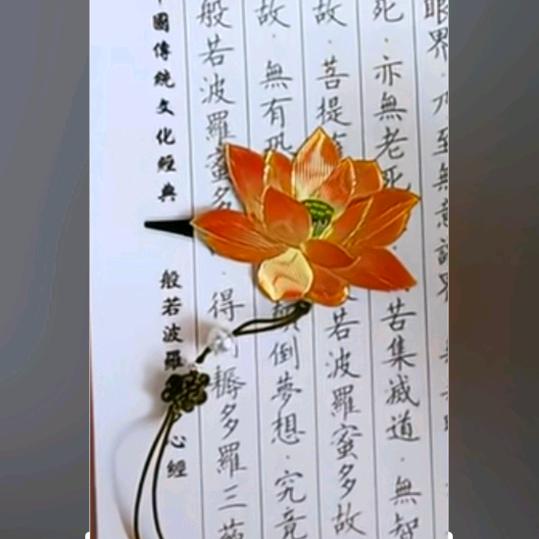 眼界·乃至無意識界
死·亦無老死
苦集滅道·無智
故·菩提薩
若波羅蜜多故
故·無有恐
顛倒夢想·究竟
般若波羅蜜多
得
耨多羅三藐
中國傳統文化經典
般若波羅
心經